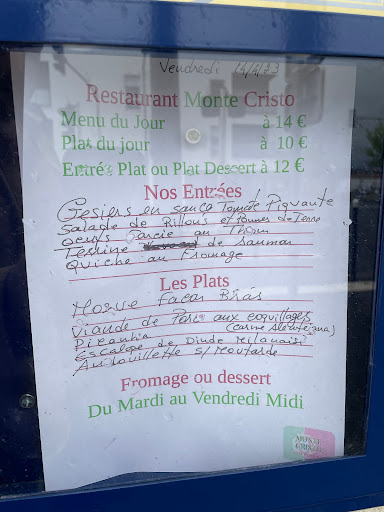 Vendredi 14/4/23
Restaurant Monte Cristo
Menu du Jour à 14 €
Plat du jour à 10 €
Entrée Plat ou Plat Dessert à 12 €
Nos Entrées
Gesiers en sauce Tomate Piquante
Salade de Rillons et Pommes de Terre
Oeufs Farcie au Thon
Terrine de Saumon
Quiche au Fromage
Les Plats
Morue façon Bras
Viande de Porc aux coquillages
(carne Alentejana)
Picanha
Escalope de Dinde Milanaise
Andouillette s/Moutarde
Fromage ou dessert
Du Mardi au Vendredi Midi
MONTE
CRISTO